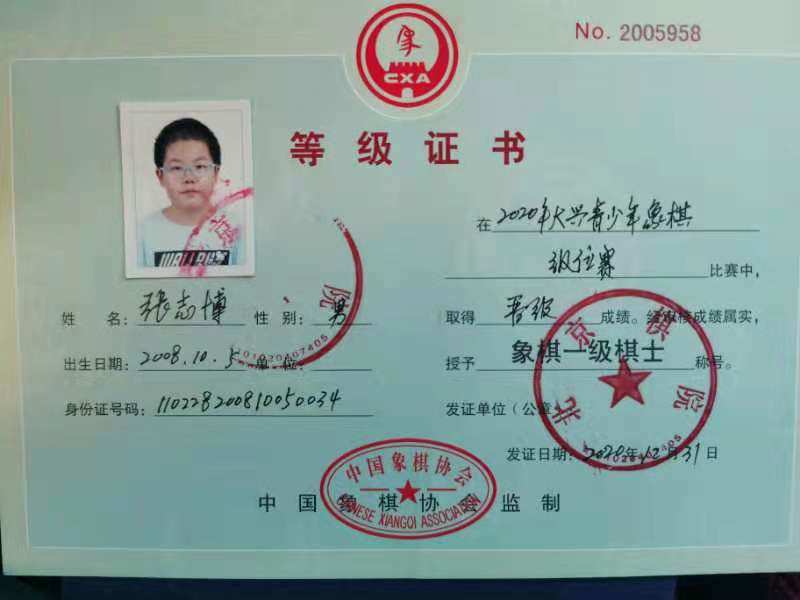 No. 2005958
象
CXA
等级证书
WALLACE
在2020年大兴青少年象棋
级位赛 比赛中,
姓 名: 张志博 性 别: 男
取得 晋级 成绩。经审核成绩属实,
出生日期: 2008.10.5 单 位:
授予 象棋一级棋士 称号。
身份证号码: 110228200810050034
发证单位(公章)
北京棋院
发证日期: 2020年12月31日
中国象棋协会
CHINESE XIANGQI ASSOCIATION
中国象棋协会监制